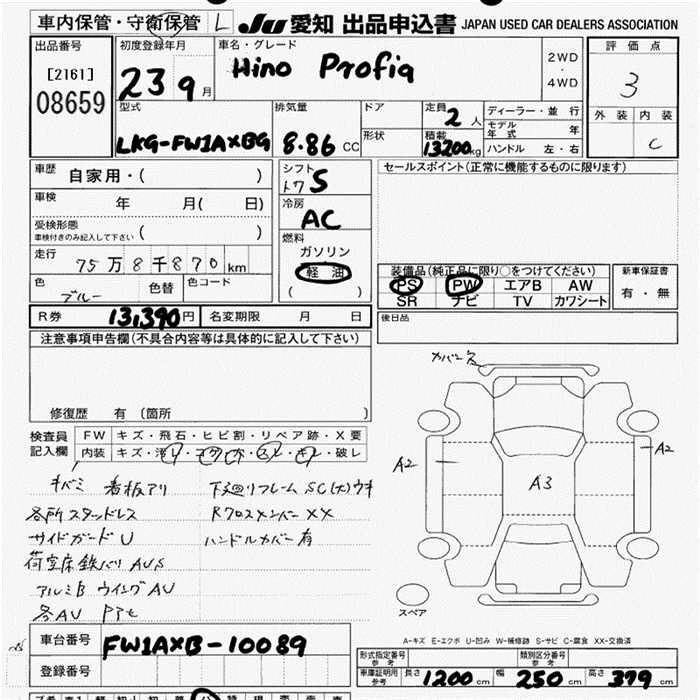 車内保管・守衛保管 L JU 愛知 出品申込書 JAPAN USED CAR DEALERS ASSOCIATION
出品番号
[2161]
08659
初度登録年月
23 9月
車名・グレード
Hino Profia
2WD
・
4WD
評価点
3
外装 内装
C
型式
LKG-FW1AXBG
排気量
8.86 CC
ドア
形状
定員 2人
積載 13200kg
ディーラー・並行
モデル年式 年
ハンドル 左・右
車歴 自家用・( )
車検 年 月( 日)
受検形態
車検付きのみ記入して下さい ( )
走行 75万8千870km
色 ブルー 色替 色コード
シフト
トワ5
冷房
AC
燃料
ガソリン
軽油
( )
セールスポイント(正常に機能するものに限ります)
装備品(純正品に限り○をつけてください)
PS PW エアB AW
SR ナビ TV カワシート
新車保証書
有・無
R券 13,390円 名変期限 月 日
後日品
注意事項申告欄(不具合内容等は具体的に記入して下さい)
修復歴 有 (箇所 )
検査員記入欄
FW キズ・飛石・ヒビ割・リペア跡・X要
内装 キズ・汚レ・コゲ・穴・スレ・キレ・破レ
キバミ 看板アリ
各所スタンドレス
サイドガードU
荷室床鉄バリ AUS
アルミB ウイングAU
各AU
下廻リフレーム SC(大)ウキ
Rクロスメンバー XX
ハンドルカバー有
カバー欠
A2
A3
A2
スペア
A-キズ E-エクボ U-凹み W-補修跡 S-サビ C-腐食 XX-交換済
車台番号 FW1AXB-10089
登録番号
型式指定番号 参考
類別区分番号 参考
車庫証明用 参考 長さ 1200cm 幅 250cm 高さ 379cm